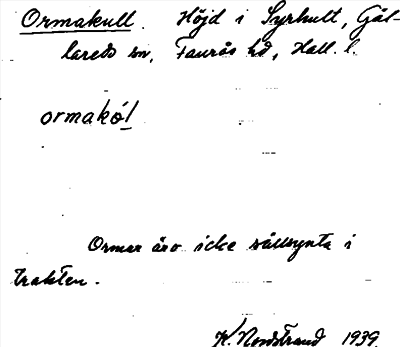 Ormakull. Höjd i Syrhult, Gäl-
lareds sn, Faurås hd, Hall. l.
ormakó̇l
Ormar äro icke sällsynta i
trakten.
K. Nordstrand 1939.